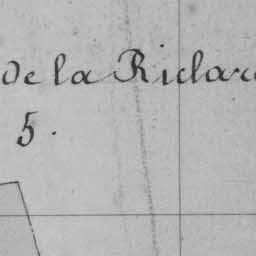 de la Riclar
5.